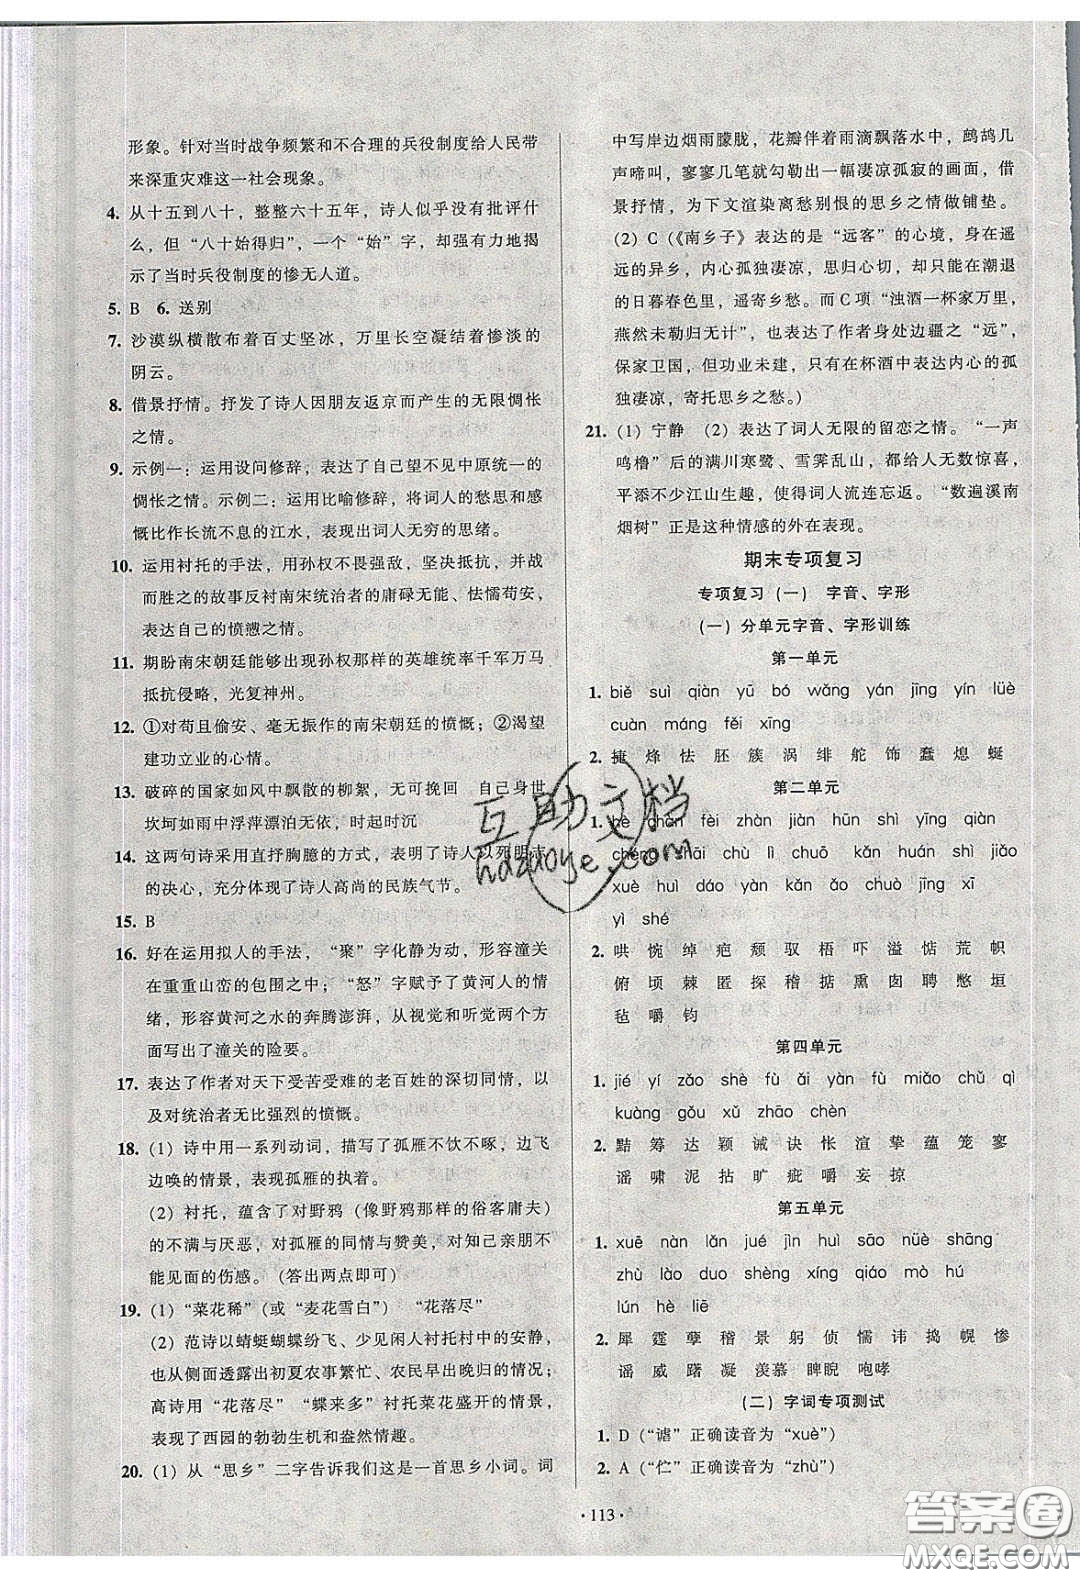 形象。针对当时战争频繁和不合理的兵役制度给人民带
来深重灾难这一社会现象。
4. 从十五到八十，整整六十五年，诗人似乎没有批评什
么，但“八十始得归”，一个“始”字，却强有力地揭
示了当时兵役制度的惨无人道。
5. B 6. 送别
7. 沙漠纵横散布着百丈坚冰，万里长空凝结着惨淡的
阴云。
8. 借景抒情。抒发了诗人因朋友返京而产生的无限惆怅
之情。
9. 示例一：运用设问修辞，表达了自己望不见中原统一的
惆怅之情。示例二：运用比喻修辞，将词人的愁思和感
慨比作长流不息的江水，表现出词人无穷的思绪。
10. 运用衬托的手法，用孙权不畏强敌，坚决抵抗，并战
而胜之的故事反衬南宋统治者的庸碌无能、怯懦苟安，
表达自己的愤懑之情。
11. 期盼南宋朝廷能够出现孙权那样的英雄统率千军万马
抵抗侵略，光复神州。
12. ①对苟且偷安、毫无振作的南宋朝廷的愤慨；②渴望
建功立业的心情。
13. 破碎的国家如风中飘散的柳絮，无可挽回 自己身世
坎坷如雨中浮萍漂泊无依，时起时沉
14. 这两句诗采用直抒胸臆的方式，表明了诗人以死明志
的决心，充分体现了诗人高尚的民族气节。
15. B
16. 好在运用拟人的手法，“聚”字化静为动，形容潼关
在重重山峦的包围之中；“怒”字赋予了黄河人的情
绪，形容黄河之水的奔腾澎湃，从视觉和听觉两个方
面写出了潼关的险要。
17. 表达了作者对天下受苦受难的老百姓的深切同情，以
及对统治者无比强烈的愤慨。
18. (1) 诗中用一系列动词，描写了孤雁不饮不啄，边飞
边唤的情景，表现孤雁的执着。
(2) 衬托，蕴含了对野鸦 (像野鸦那样的俗客庸夫)
的不满与厌恶，对孤雁的同情与赞美，对知己亲朋不
能见面的伤感。(答出两点即可)
19. (1)“菜花稀”(或“麦花雪白”) “花落尽”
(2) 范诗以蜻蜓蝴蝶纷飞、少见闲人衬托村中的安静，
也从侧面透露出初夏农事繁忙、农民早出晚归的情况；
高诗以“花落尽”“蝶来多”衬托菜花盛开的情景，
表现了西园的勃勃生机和盎然情趣。
20. (1) 从“思乡”二字告诉我们这是一首思乡小词。词
中写岸边烟雨朦胧，花瓣伴着雨滴飘落水中，鹧鸪几
声啼叫，寥寥几笔就勾勒出一幅凄凉孤寂的画面，借
景抒情，为下文渲染离愁别恨的思乡之情做铺垫。
(2) C (《南乡子》表达的是“远客”的心境，身在遥
远的异乡，内心孤独凄凉，思归心切，却只能在潮退
的日暮春色里，遥寄乡愁。而 C 项“浊酒一杯家万里，
燕然未勒归无计”，也表达了作者身处边疆之“远”，
保家卫国，但功业未建，只有在杯酒中表达内心的孤
独凄凉，寄托思乡之愁。)
21. (1) 宁静 (2) 表达了词人无限的留恋之情。“一声
鸣橹”后的满川寒鹭、雪霁乱山，都给人无数惊喜，
平添不少江山生趣，使得词人流连忘返。“数遍溪南
烟树”正是这种情感的外在表现。
期末专项复习
专项复习 (一) 字音、字形
(一) 分单元字音、字形训练
第一单元
1. biě suì qiàn yū bó wǎng yán jīng yín lüè
cuàn máng fěi xīng
2. 捷 烽 怯 胚 簇 涡 绯 舵 饰 蠢 熄 蜒
第二单元
chǎn fèi zhàn jiàn hūn shì yīng yīng
chù lì chuāi kǎn huán shì jiǎo
xuè huì dáo yàn kǎn āo chuò jīng xī
yì shé
2. 哄 惋 绰 疤 颓 驭 梧 吓 溢 惦 荒 帜
俯 顷 棘 匿 探 稽 掂 熏 囱 聘 憋 垣
毡 嚼 钧
第四单元
1. jié yí zǎo shè fù ǎi yàn fù miǎo chǔ qì
kuàng gǒu xǔ zhāo chèn
2. 黠 筹 达 颖 诫 诀 怅 渲 挚 蕴 笼 寥
谣 啸 泥 拈 旷 疵 嚼 妄 掠
第五单元
1. xuē nàn lǎn jué jìn huì sāo nüè shāng
zhù lào duo shèng xíng qiáo mò hú
lún hè liē
2. 犀 霆 孽 稽 景 躬 侦 懦 讳 捣 幌 惨
谣 威 躇 凝 羡慕 睥睨 咆哮
(二) 字词专项测试
1. D (“谑”正确读音为“xuè”)
2. A (“伫”正确读音为“zhù”)
· 113 ·
互助文档
hdzuoye.com
答案圈
MXQE.COM